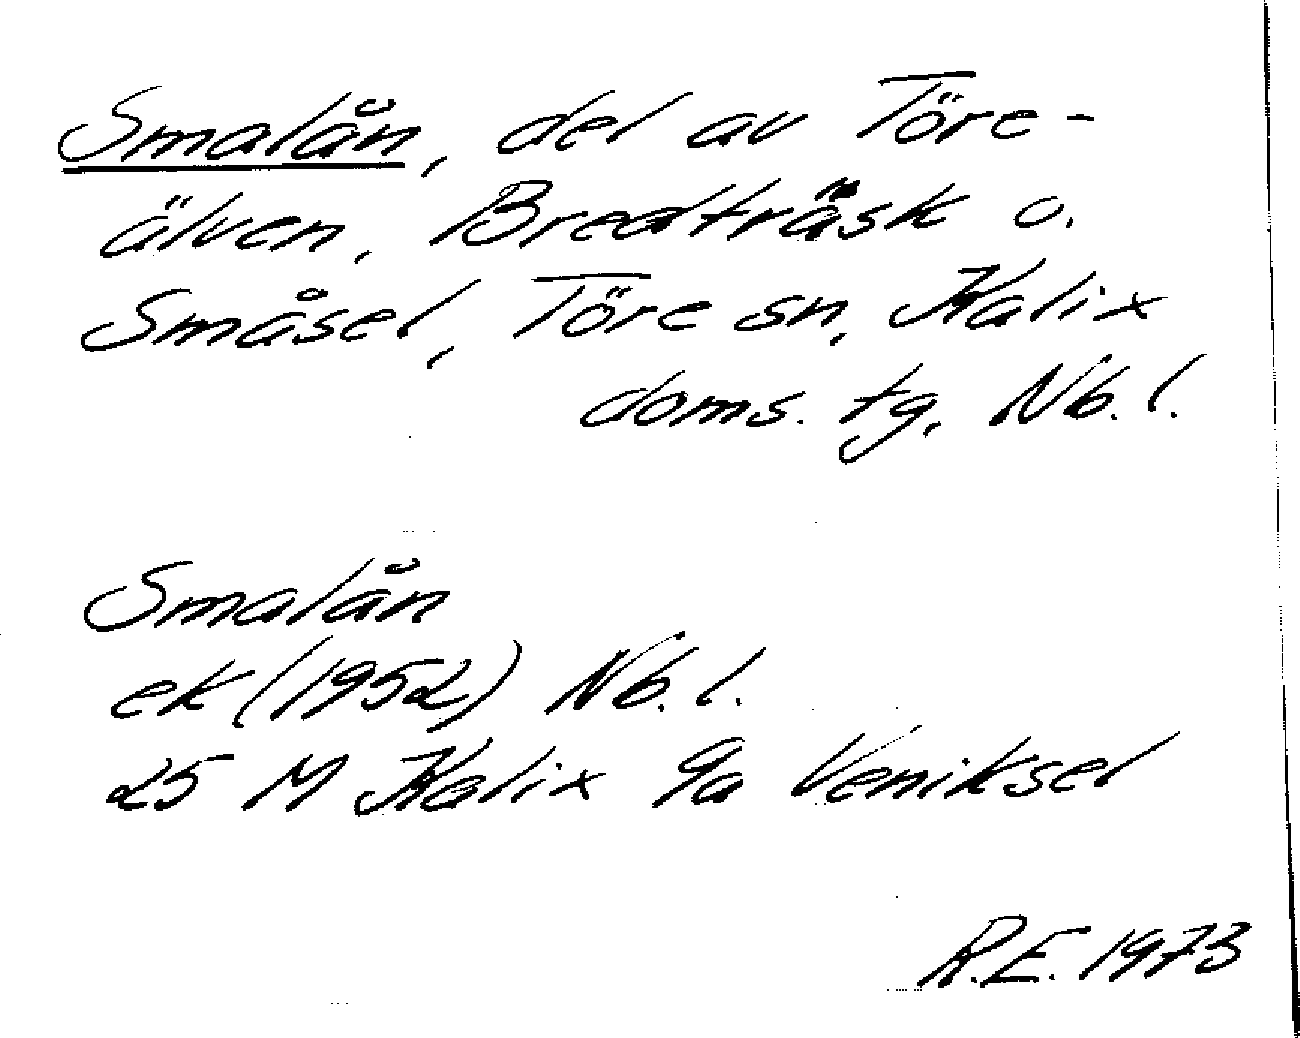 Smalån, del av Töre-
älven, Bredträsk o.
Småsel, Töre sn, Kalix
doms. tg, Nb. l.
Smalån
ek (1952) Nb. l.
25 M Kalix 9a Veniksel
R.E. 1973